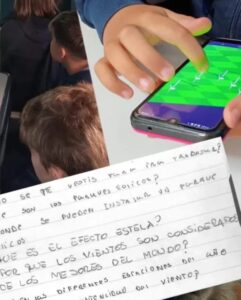 SE TE
SON LOS PARQUES EÓLICOS?
DONDE SE PUEDEN INSTALAR UN PARQUE
EÓLICOS
QUE ES EL EFECTO ESTELA?
POR QUE LOS VIENTOS SON CONSIDERADOS
DE LOS MEJORES DEL MUNDO?
EN LAS DIFERENTES ESTACIONES DEL AÑO
DEL VIENTO?